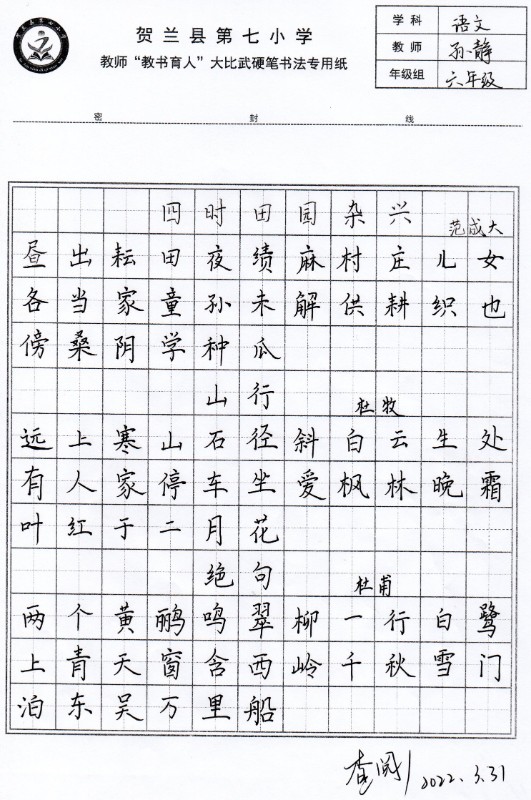 贺兰县第七小学
教师“教书育人”大比武硬笔书法专用纸
学科 语文
教师 孙静
年级组 六年级
密 封 线
四时田园杂兴
范成大
昼出耘田夜绩麻村庄儿女
各当家童孙未解供耕织也
傍桑阴学种瓜
山行 杜牧
远上寒山石径斜白云生处
有人家停车坐爱枫林晚霜
叶红于二月花
绝句 杜甫
两个黄鹂鸣翠柳一行白鹭
上青天窗含西岭千秋雪门
泊东吴万里船
查阅 2022.3.31